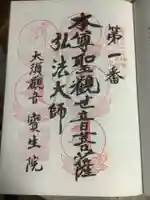 第一番
本尊聖觀世音菩薩
弘法大師
大須觀音 寳生院